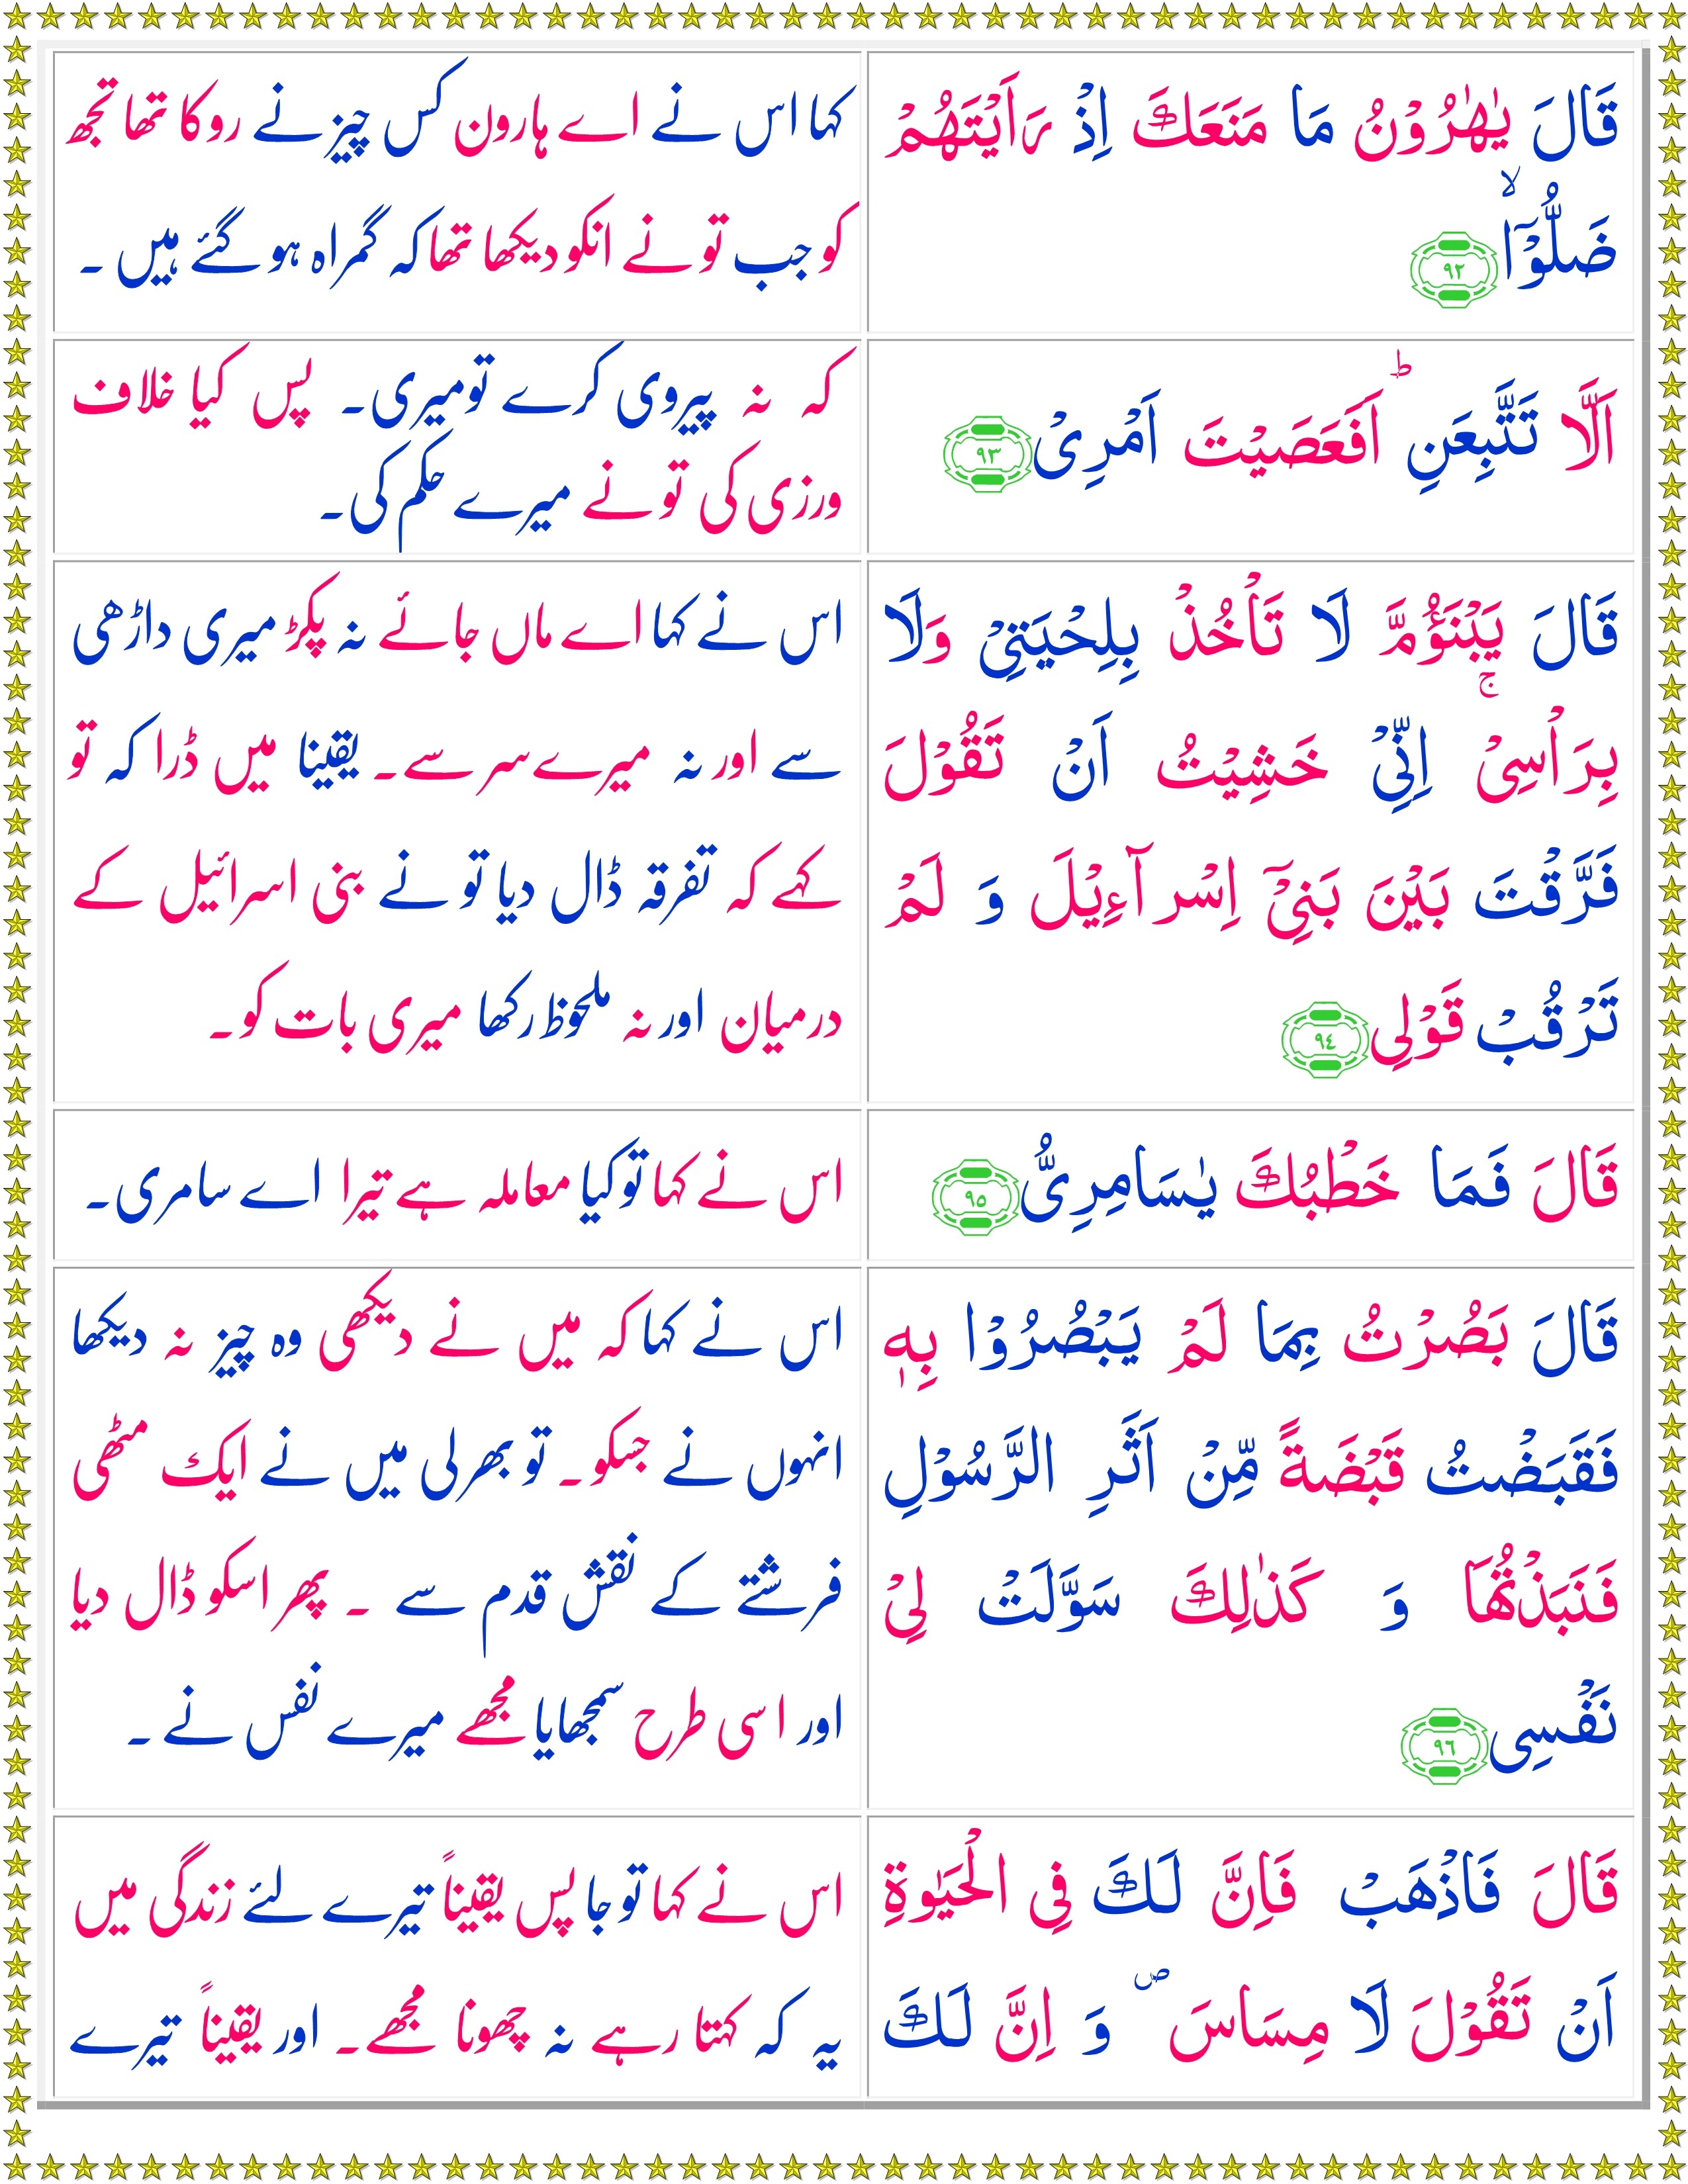 قَالَ یٰهٰرُوْنُ مَا مَنَعَكَ اِذْ رَاَیْتَهُمْ
ضَلُّوْۤا ۙ ﴿٩٢﴾
کہا اس نے اے ہارون کس چیز نے روکا تھا تجھ
کو جب تو نے انکو دیکھا تھا کہ گمراہ ہو گئے ہیں ۔
اَلَّا تَتَّبِعَنِ ؕ اَفَعَصَیْتَ اَمْرِیْ ﴿٩٣﴾
کہ نہ پیروی کرے تو میری۔ پس کیا خلاف
ورزی کی تو نے میرے حکم کی۔
قَالَ یَبْنَؤُمَّ لَا تَاْخُذْ بِلِحْیَتِیْ وَلَا
بِرَاْسِیْ ۚ اِنِّیْ خَشِیْتُ اَنْ تَقُوْلَ
فَرَّقْتَ بَیْنَ بَنِیْۤ اِسْرآءِیْلَ وَ لَمْ
تَرْقُبْ قَوْلِی ﴿٩٤﴾
اس نے کہا اے ماں جائے نہ پکڑ میری داڑھی
سے اور نہ میرے سر سے۔ یقینا میں ڈرا کہ تو
کہے کہ تفرقہ ڈال دیا تو نے بنی اسرائیل کے
درمیان اور نہ ملحوظ رکھا میری بات کو۔
قَالَ فَمَا خَطْبُكَ یٰسَامِرِیُّ ﴿٩٥﴾
اس نے کہا تو کیا معاملہ ہے تیرا اے سامری۔
قَالَ بَصُرْتُ بِمَا لَمْ یَبْصُرُوْا بِهٖ
فَقَبَضْتُ قَبْضَةً مِّنْ اَثَرِ الرَّسُوْلِ
فَنَبَذْتُهَا وَ كَذٰلِكَ سَوَّلَتْ لِیْ
نَفْسِی ﴿٩٦﴾
اس نے کہا کہ میں نے دیکھی وہ چیز نہ دیکھا
انہوں نے جسکو۔ تو بھر لی میں نے ایک مٹھی
فرشتے کے نقش قدم سے ۔ پھر اسکو ڈال دیا
اور اسی طرح سمجھایا مجھے میرے نفس نے ۔
قَالَ فَاذْهَبْ فَاِنَّ لَكَ فِی الْحَیٰوةِ
اَنْ تَقُوْلَ لَا مِسَاسَ ۪ وَ اِنَّ لَكَ
اس نے کہا تو جا پس یقیناً تیرے لئے زندگی میں
یہ کہ کہتا رہے نہ چھونا مجھے۔ اور یقیناً تیرے